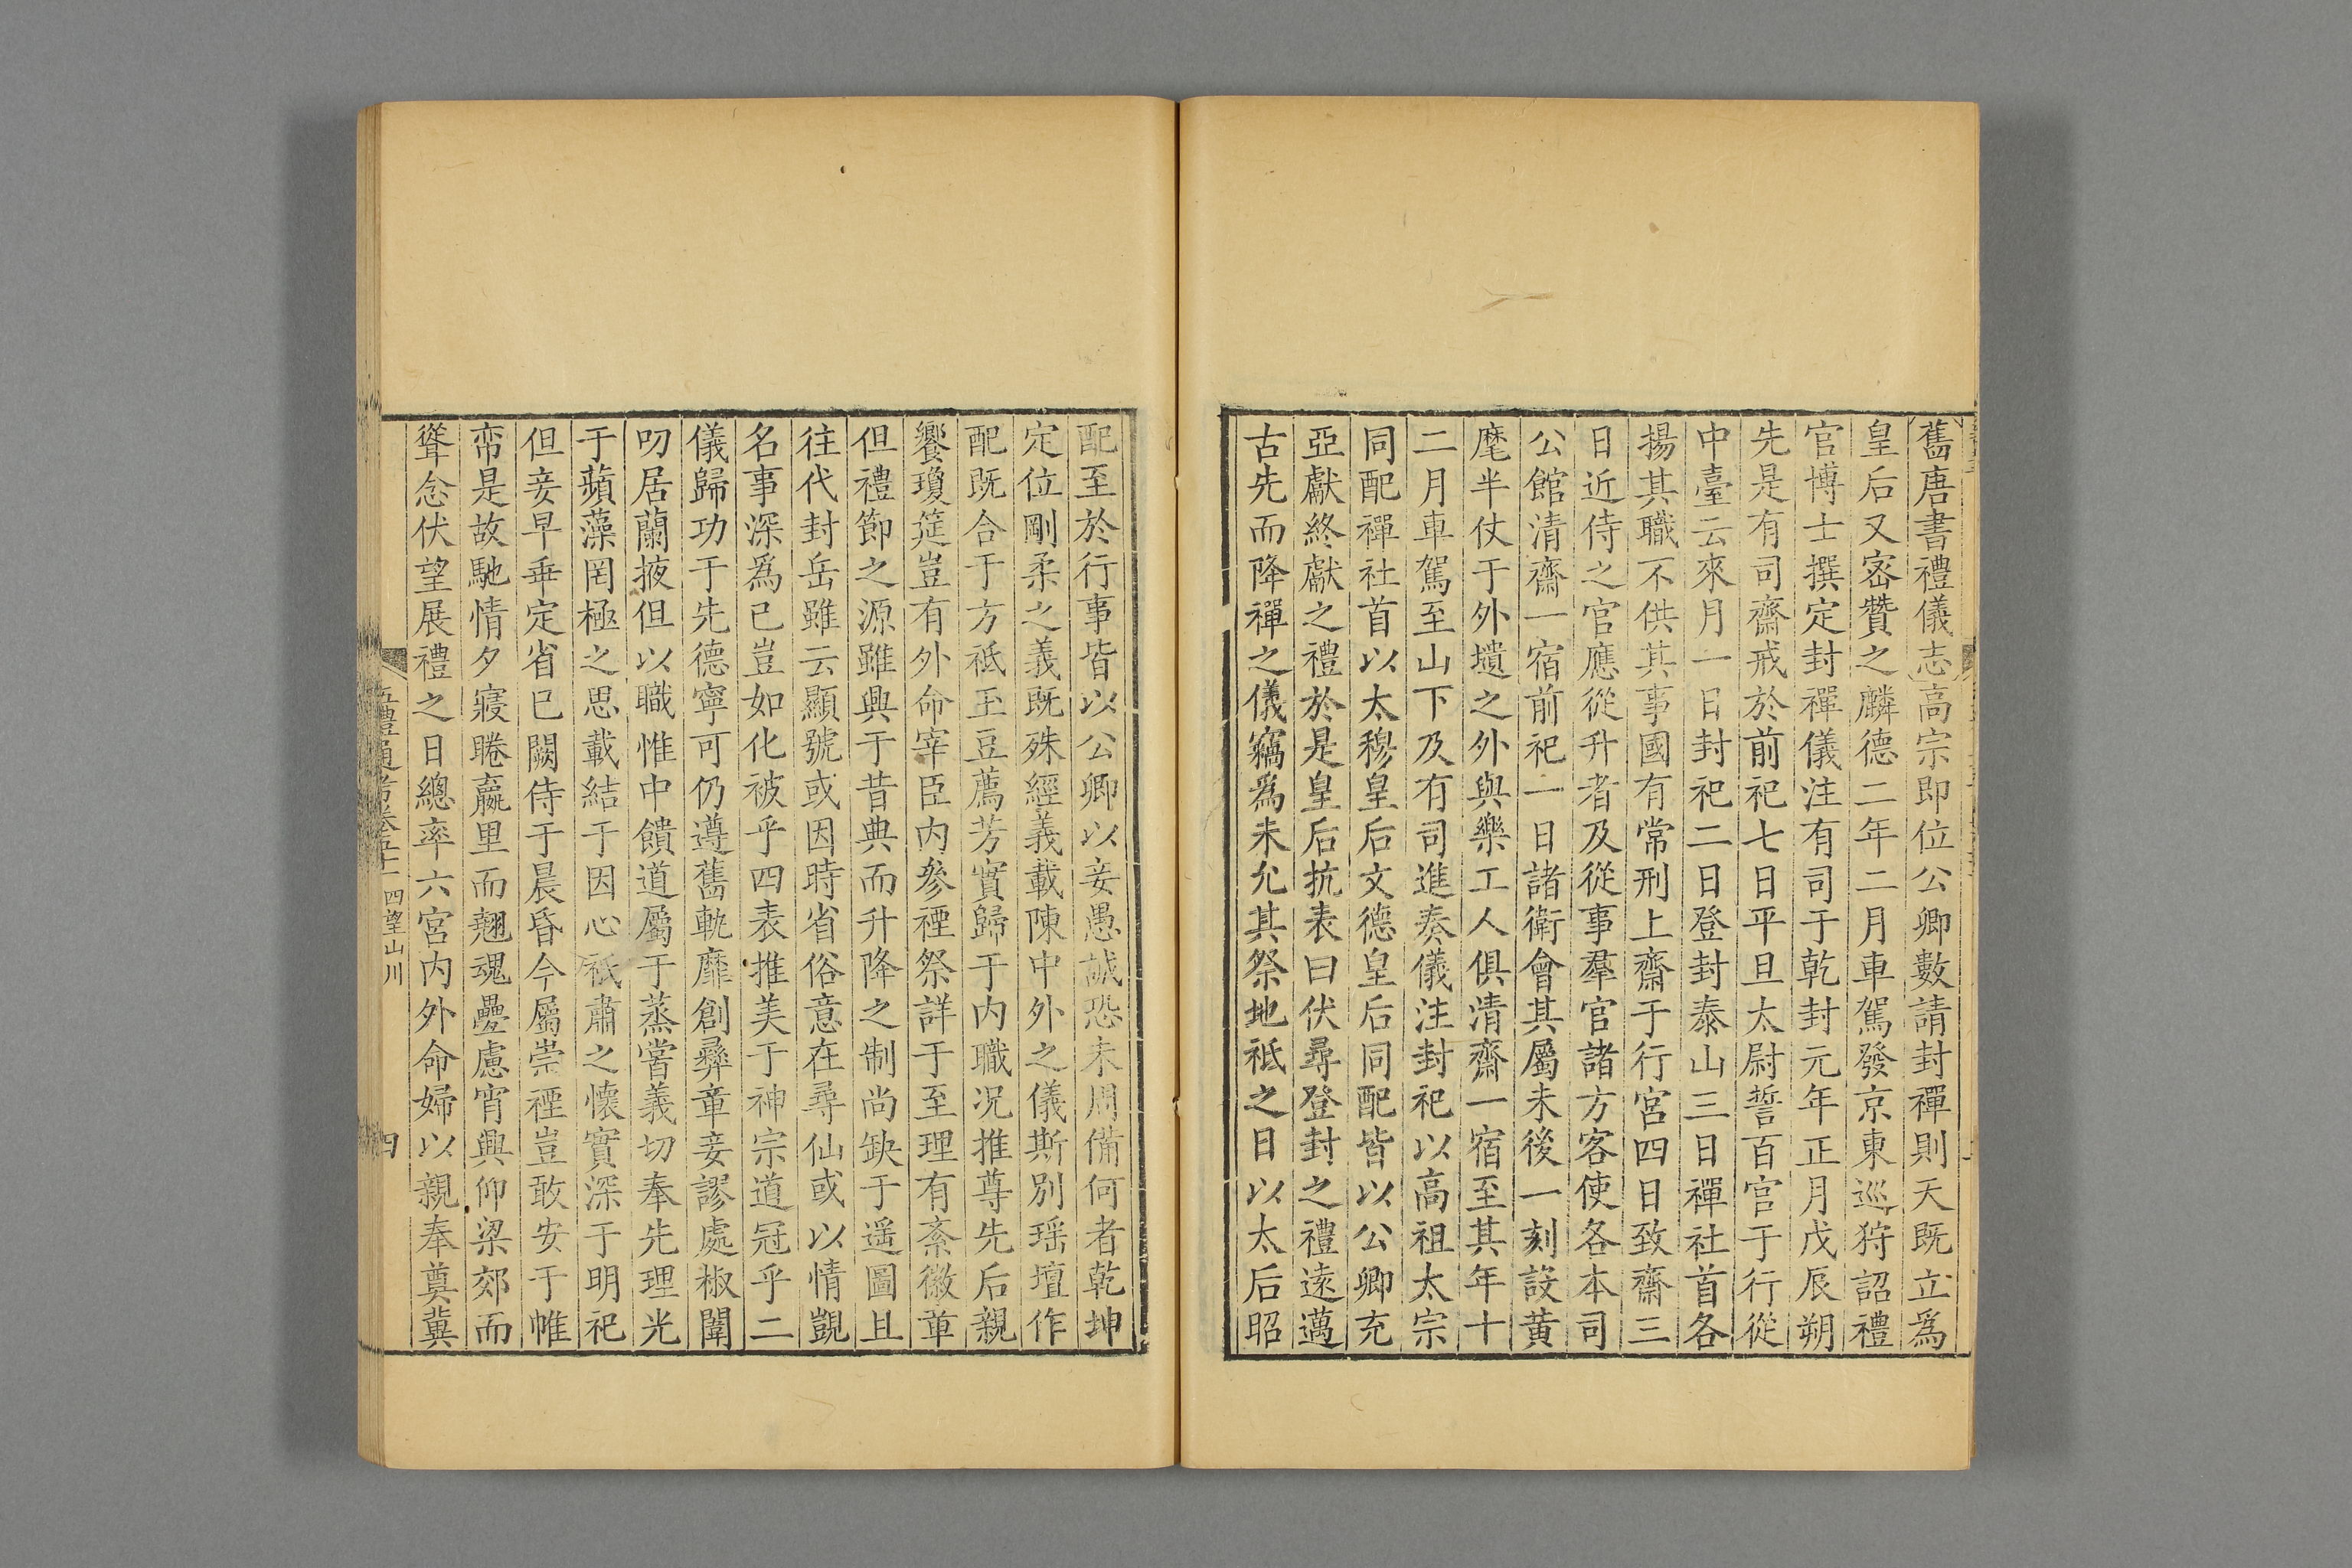 舊唐書禮儀志高宗即位公卿數請封禪則天既立爲
皇后又密贊之麟德二年二月車駕發京東巡狩詔禮
官博士撰定封禪儀注有司于乾封元年正月戊辰朔
先是有司齋戒於前祀七日平旦太尉誓百官于行從
中臺云來月一日封祀二日登封泰山三日禪社首各
揚其職不供其事國有常刑上齋于行宮四日致齋三
日近侍之官應從升者及從事羣官諸方客使各本司
公館清齋一宿前祀一日諸衛會其屬未後一刻設黃
麾半仗于外壝之外與樂工人俱清齋一宿至其年十
二月車駕至山下及有司進奏儀注封祀以高祖太宗
同配禪社首以太穆皇后文德皇后同配皆以公卿充
亞獻終獻之禮於是皇后抗表曰伏尋登封之禮遠邁
古先而降禪之儀竊爲未允其祭地祇之日以太后昭
配至於行事皆以公卿以妾愚誠恐未周備何者乾坤
定位剛柔之義既殊經義載陳中外之儀斯別瑤壇作
配既合于方祇玉豆薦芳實歸于内職况推尊先后親
饗瓊筵豈有外命宰臣内參禋祭詳于至理有紊徽章
但禮節之源雖興于昔典而升降之制尚缺于遥圖且
往代封岳雖云顯號或因時省俗意在尋仙或以情覬
名事深爲已豈如化被乎四表推美于神宗道冠乎二
儀歸功于先德寧可仍遵舊軌靡創彝章妾謬處椒闈
叨居蘭掖但以職惟中饋道屬于蒸嘗義切奉先理光
于蘋藻罔極之思載結于因心祇肅之懷實深于明祀
但妾早乖定省已闕侍于晨昏今屬崇禋豈敢安于帷
帟是故馳情夕寢睠嬴里而翹魂疊慮宵興仰梁郊而
聳念伏望展禮之日總率六宮内外命婦以親奉奠冀
五禮通考卷五十一 四望山川 四